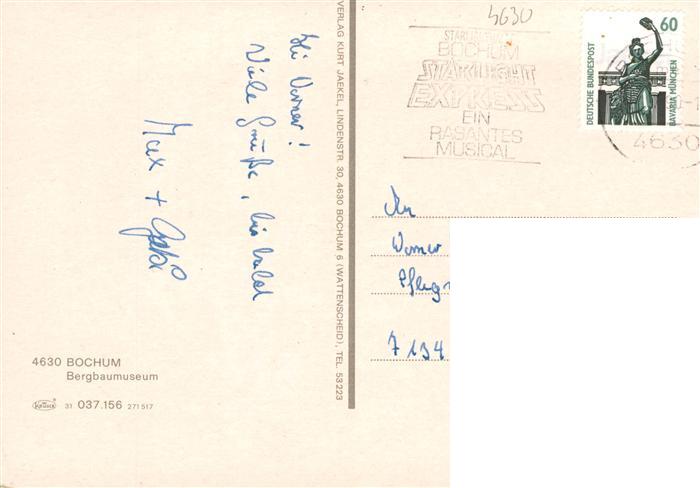 4630
STARLIGHT
BOCHUM
STARLIGHT
EXPRESS
EIN
RASANTES
MUSICAL
DEUTSCHE BUNDESPOST
60
BAVARIA MÜNCHEN
4630
VERLAG KURT JAEKEL, LINDENSTR. 30, 4630 BOCHUM 6 (WATTENSCHEID), TEL. 53223
Hi Werner!
Viele Grüße, bis bald
Max + Gabi
An
Werner
Pflug
7134
4630 BOCHUM
Bergbaumuseum
Krüger 31 037.156 271517